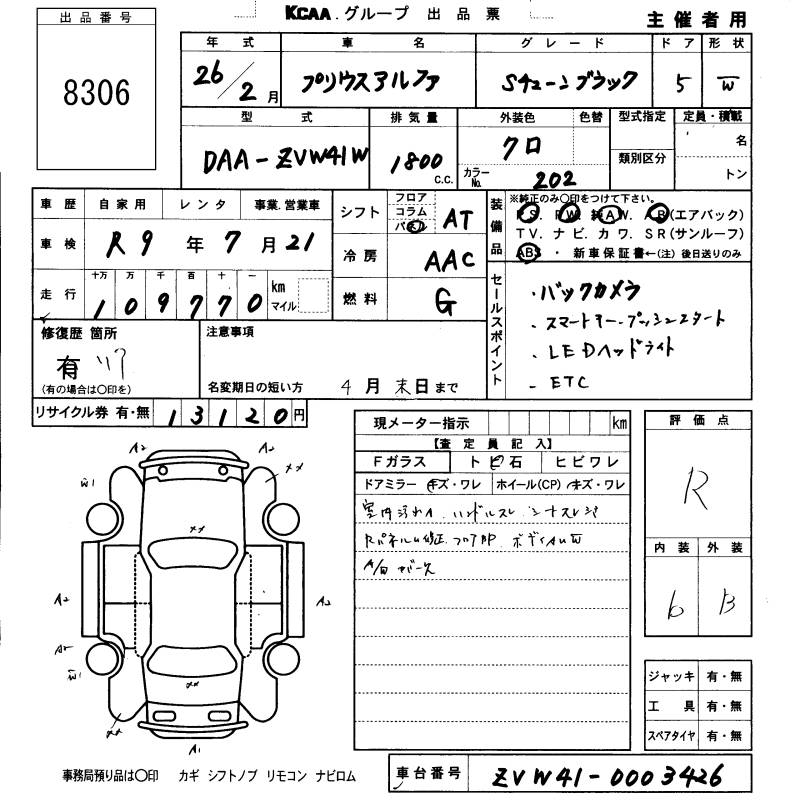 出品番号
8306
KCAA.グループ 出品票
主催者用
年式 車名 グレード ドア 形状
26/2月 プリウスアルファ Sチューンブラック 5 W
型式 排気量 外装色 色替 型式指定 定員・積載
DAA-ZVW41W 1800 C.C. クロ 名
カラーNo. 202 類別区分 トン
車歴 自家用 レンタ 事業.営業車
車検 R9年7月21
走行 十万 万 千 百 十 一
109770 km マイル
シフト フロア コラム パネル AT
冷房 AAC
燃料 G
装備品 ※純正のみ○印をつけて下さい。
P.S. P.W. 純A.W. A.B(エアバック)
TV. ナビ. カワ. SR(サンルーフ)
ABS・新車保証書←(注)後日送りのみ
セールスポイント
・バックカメラ
・スマートキー・プッシュスタート
・LEDヘッドライト
・ETC
修復歴 箇所
有 リア
(有の場合は○印を)
注意事項
名変期日の短い方 4月末日まで
リサイクル券 有・無 13120円
現メーター指示 km
【査定員記入】
Fガラス トビ石 ヒビワレ
ドアミラー キズ・ワレ ホイール(CP) キズ・ワレ
室内汚れ. ハンドルスレ. シートスレ
Rパネル修正. フロア
評価点
R
内装 外装
6 B
ジャッキ 有・無
工具 有・無
スペアタイヤ 有・無
A2 A2
W1 XX
XX
A2 A2
W1
XX
XX
A1
事務局預り品は○印 カギ シフトノブ リモコン ナビロム
車台番号 ZVW41-0003426